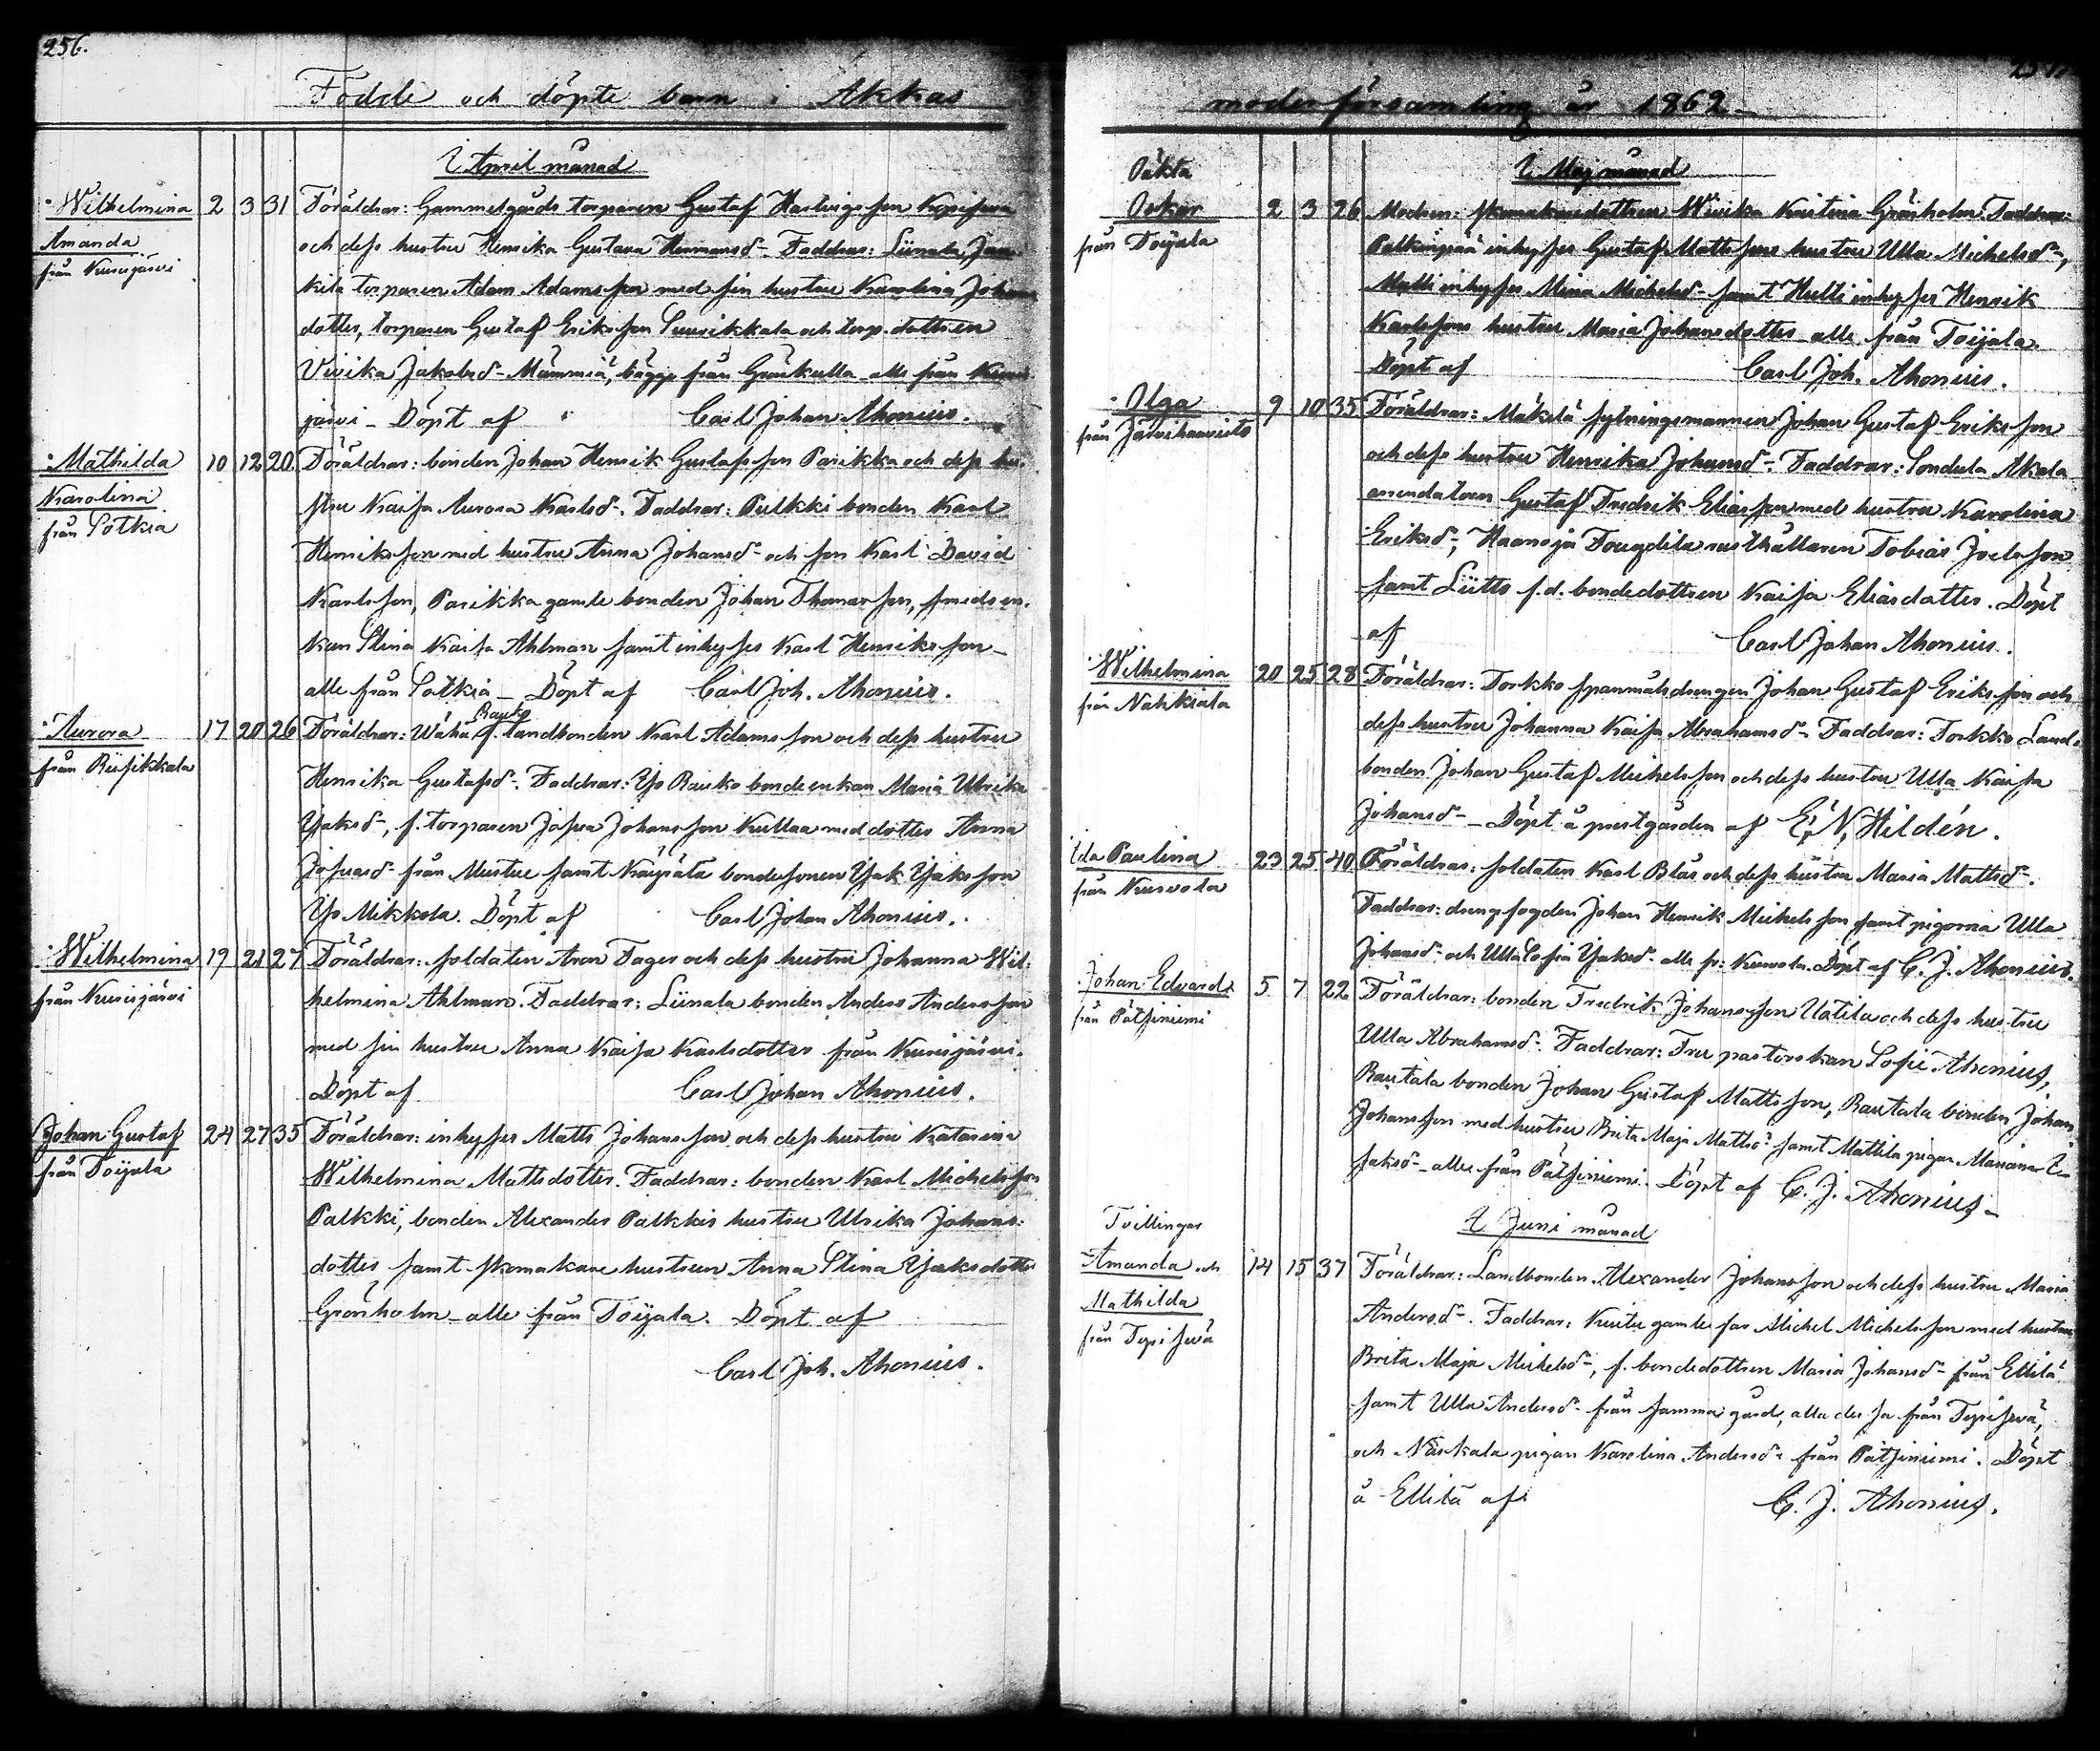 256.
Födde och döpte barn i Akkas
I April månad
Wilhelmina 2 3 31 Föräldrar: Gammelgårds torparen Gustaf Hartvigsson
Amanda och dess hustru Henrika Gustava Hermansd- Faddrar: Liinala
från Kurisjärvi kilä torparen Adam Adamsson med sin hustru Karolina Johans
dotter, torparen Gustaf Eriksson Suurikkala och torp. dottren
Vivika Jakobsd- Mämmiä, bägge från Gräskulla alle från Kuris
järvi - Döpt af Carl Johan Ahonius.
Mathilda 10 12 20 Föräldrar: bonden Johan Henrik Gustafsson Parikka och dess hu-
Karolina stru Kaisa Aurora Karlsd-. Faddrar: Pulkki bonden Karl
från Sotkia Henriksson med hustru Anna Johansd- och son Karl David
Karlsson, Parikka gamle bonden Johan Thomasson, smedsen-
kan Stina Kaisa Ahlman samt inhyses Karl Henriksson -
alle från Sotkia - Döpt af Carl Joh. Ahonius.
Rauko
Aurora 17 20 26 Föräldrar: Wähä f. landbonden Karl Adamsson och dess hustru
från Riisikkala Henrika Gustafsd-. Faddrar: Yso Rauko bondeenkan Maria Ulrika
Isaksd-, f. torparen Josua Johansson Kullaa med dotter Anna
Josuasd- från Mustue samt bondesonen Isak Isaksson
Yso Mikkola. Döpt af Carl Johan Ahonius.
Wilhelmina 19 21 27 Föräldrar: soldaten Aron Fager och dess hustru Johanna Wil-
från Kurisjärvi helmina Ahlman. Faddrar: Liinala bonden Anders Andersson
med sin hustru Anna Kaisa Karlsdotter från Kurisjärvi.
Döpt af Carl Johan Ahonius.
Johan Gustaf 24 27 35 Föräldrar: inhyses Matts Johansson och dess hustru Katarina
från Toijala Wilhelmina Mattsdotter. Faddrar: bonden Karl Michelsson
Palkki, bonden Alexander Palkkis hustru Ulrika Johans-
dotter samt skomakare hustrun Anna Stina Isaksdotter
Grönholm - alle från Toijala. Döpt af
Carl Joh. Ahonius.
moderförsamling år 1862 -
I Maj månad
Oäkta
Oskar 2 3 26 Modren: skomakaredottren Wivika Kristina Grönholm. Faddrar:
från Toijala inhyses Gustaf Mattssons hustru Ulla Michelsd-,
Matti inhyses Mina Michelsd- samt Hutti inhyses Henrik
Karlssons hustru Maria Johansdotter - alle från Toijala.
Döpt af Carl Joh. Ahonius.
Olga 9 10 35 Föräldrar: Mäkelä sytningsmannen Johan Gustaf Eriksson
från Järvihaavisto och dess hustru Henrika Johansd-. Faddrar: Sondula Akala
arrendatorn Gustaf Fredrik Eliasson med hustru Karolina
Eriksd-, Haanoja Fougdila rusthållaren Tobias Joelsson
samt Liitto f.d. bondedottren Kaisa Eliasdotter. Döpt
af Carl Johan Ahonius.
Wilhelmina 20 25 28 Föräldrar: Torkko spanmålsdrengen Johan Gustaf Eriksson och
från Nahkiala dess hustru Johanna Kaisa Abrahamsd- Faddrar: Torkko Land-
bonden Johan Gustaf Michelsson och dess hustru Ulla Kaisa
Johansd- - Döpt å prestgården af E. N. Hildén.
Ida Paulina 23 25 40 Föräldrar: soldaten Karl Blås och dess hustru Maria Mattsd-.
från Kurvola Faddrar: drengfogden Johan Henrik Michelsson samt pigorna Ulla
Johansd- och Ulla Sofia Isaksd- alle fr: Kurvola. Döpt af C. J. Ahonius.
Johan Edvard 5 7 22 Föräldrar: bonden Fredrik Johansson Uotila och dess hustru
från Pätsiniemi Ulla Abrahamsd-. Faddrar: Fru pastorskan Sofie Ahonius,
Rautala bonden Johan Gustaf Mattsson, Rautala bonden Johan
Johansson med hustru Brita Maja Mattsd- samt Mattila pigan Mariana I-
saksd- - alle från Pätsiniemi. Döpt af C. J. Ahonius -
I Juni månad
Tvillingar
Amanda och 14 15 37 Föräldrar: Landbonden Alexander Johansson och dess hustru Maria
Mathilda Andersd-. Faddrar: gamle far Michel Michelsson med hustru
från Terisjvä Brita Maja Michelsd-, f. bondedottren Maria Johansd- från Ellilä
samt Ulla Andersd- från samma gård, alla dessa från
och pigan Karolina Andersd- från Pätsiniemi. Döpt
å Ellilä af C. J. Ahonius.